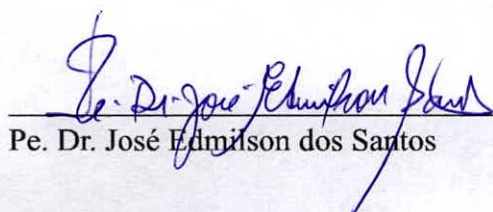 Pe. Dr. José Edmilson
Pe. Dr. José Edmilson dos Santos